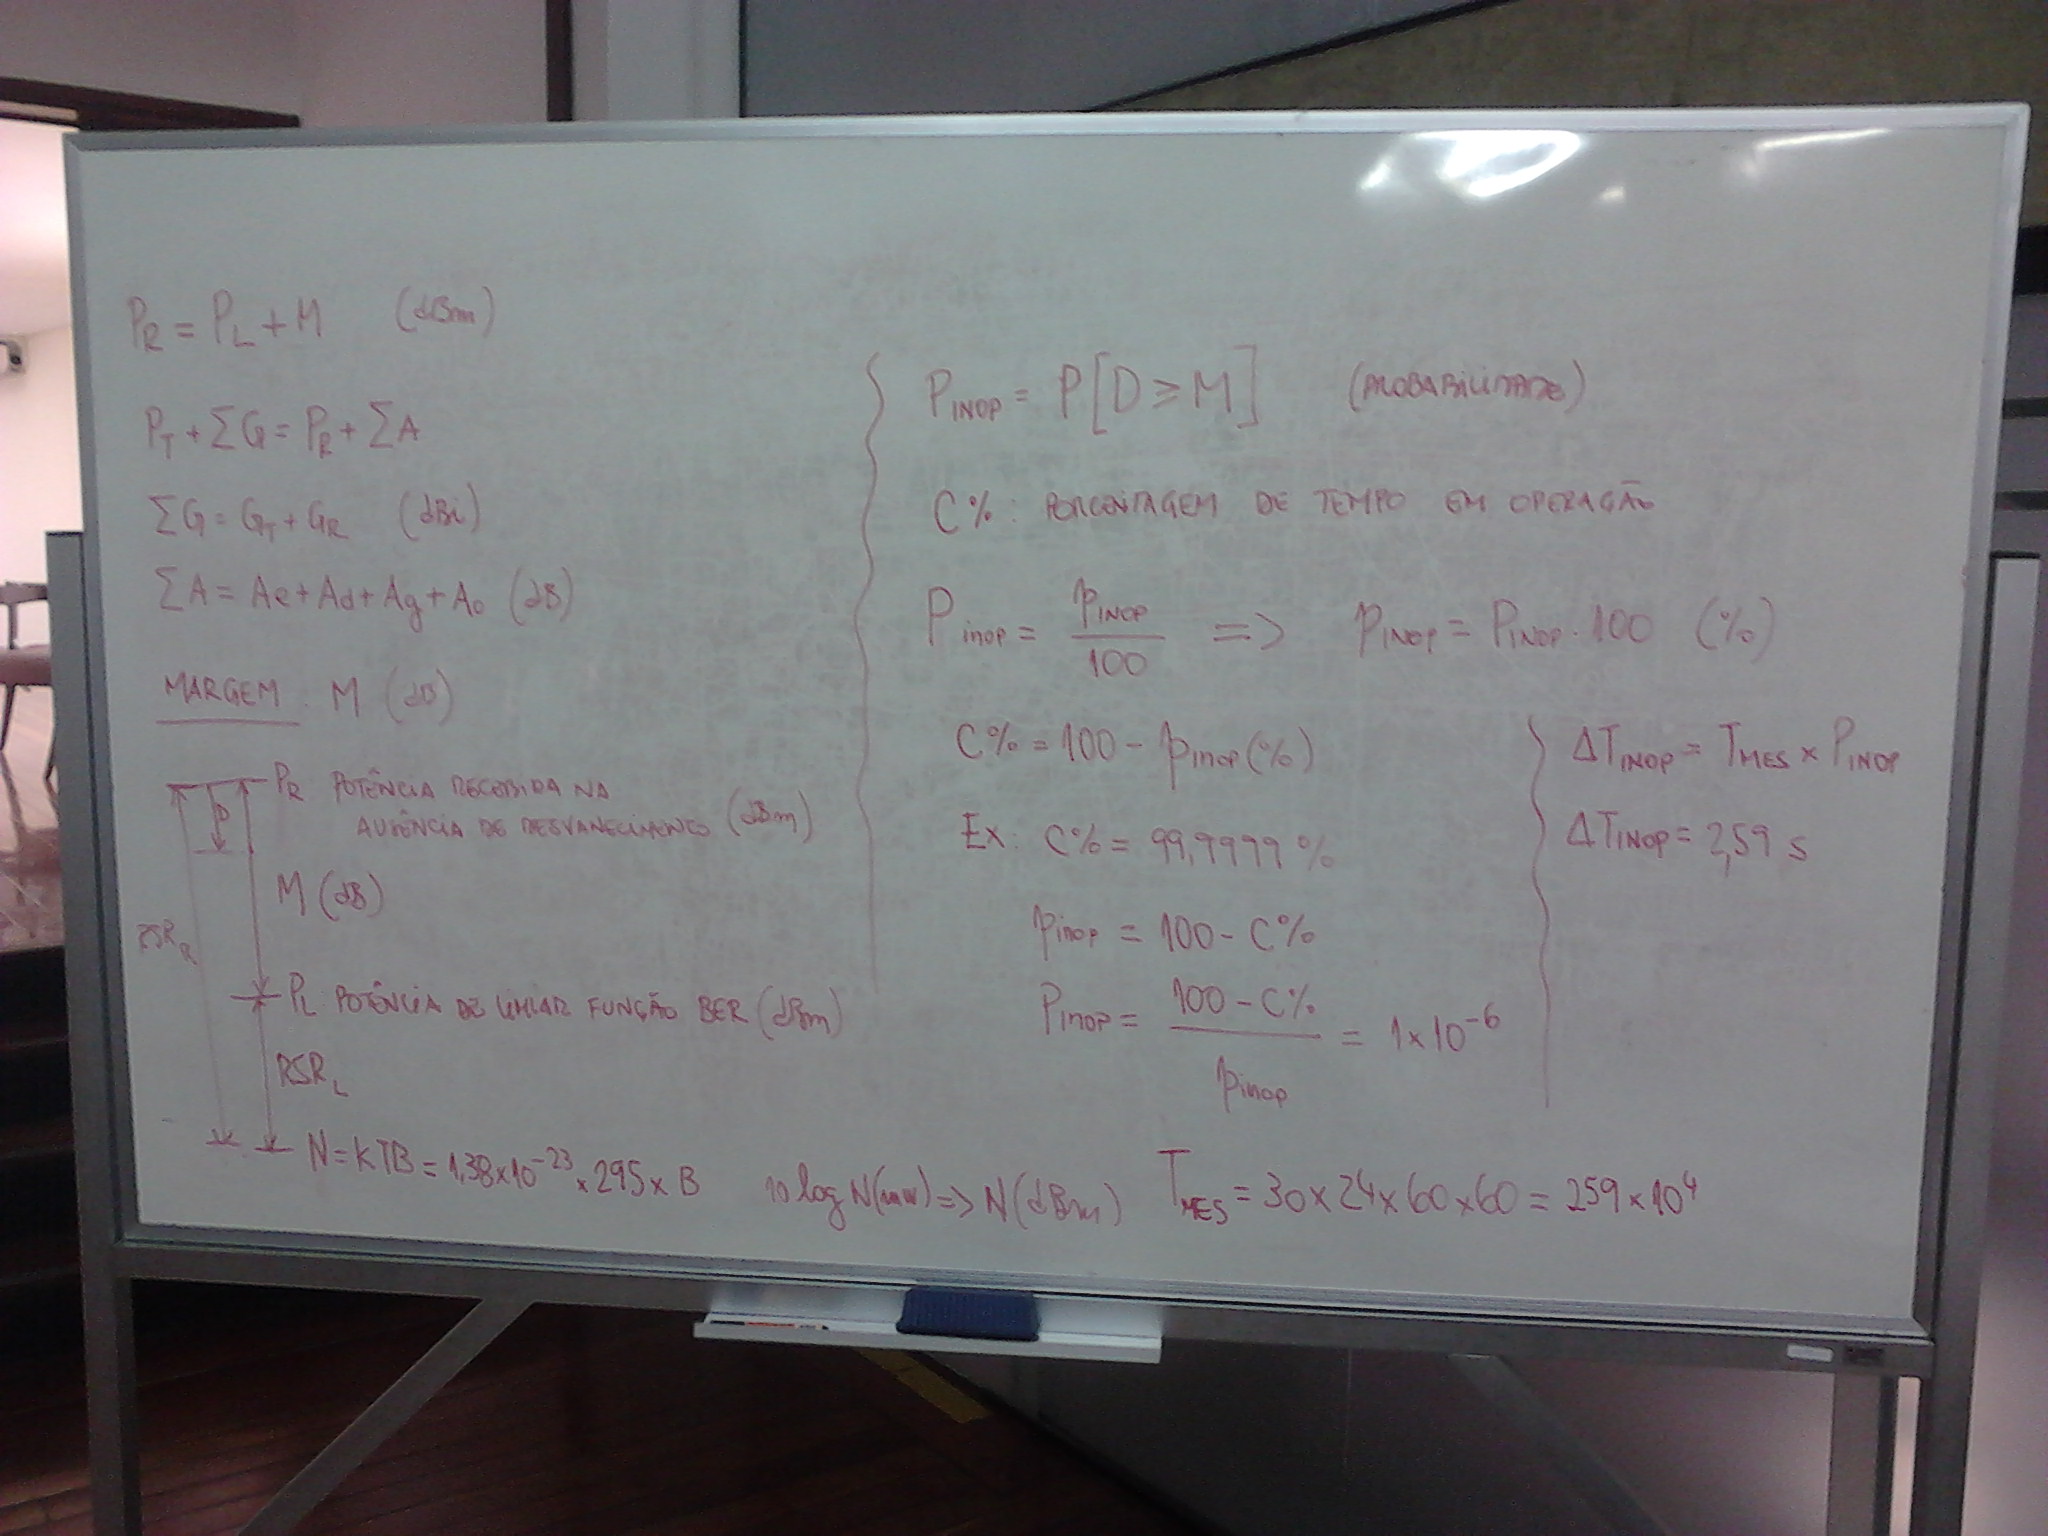 P_R = P_L + M (dBm)
P_T + ΣG = P_R + ΣA
ΣG = G_T + G_R (dBi)
ΣA = Ae + Ad + Ag + Ao (dB)
MARGEM: M (dB)
P_R POTÊNCIA RECEBIDA NA
AUSÊNCIA DE DESVANECIMENTO (dBm)
D
M (dB)
RSR_R
P_L POTÊNCIA DE LIMIAR FUNÇÃO BER (dBm)
RSR_L
N = KTB = 1,38x10^-23 x 295 x B
10 log N(mW) => N(dBm)
P_INOP = P[D ≥ M] (PROBABILIDADE)
C% : PORCENTAGEM DE TEMPO EM OPERAÇÃO
P_inop = p_INOP / 100 => p_INOP = P_INOP . 100 (%)
C% = 100 - p_inop (%)
Ex: C% = 99,9999 %
p_inop = 100 - C%
P_inop = (100 - C%) / p_inop = 1x10^-6
T_MES = 30x24x60x60 = 259x10^4
ΔT_INOP = T_MES x P_INOP
ΔT_INOP = 2,59 s